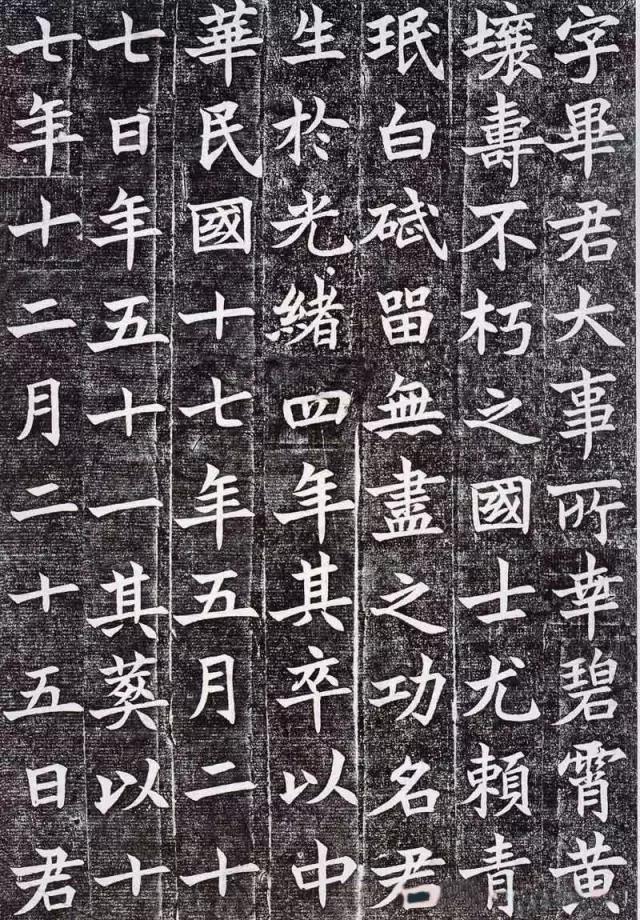 字畢君大事所幸碧霄黃
壤壽不朽之國士尤賴青
珉白碔留無盡之功名君
生於光緒四年其卒以中
華民國十七年五月二十
七日年五十一其葬以十
七年十二月二十五日君